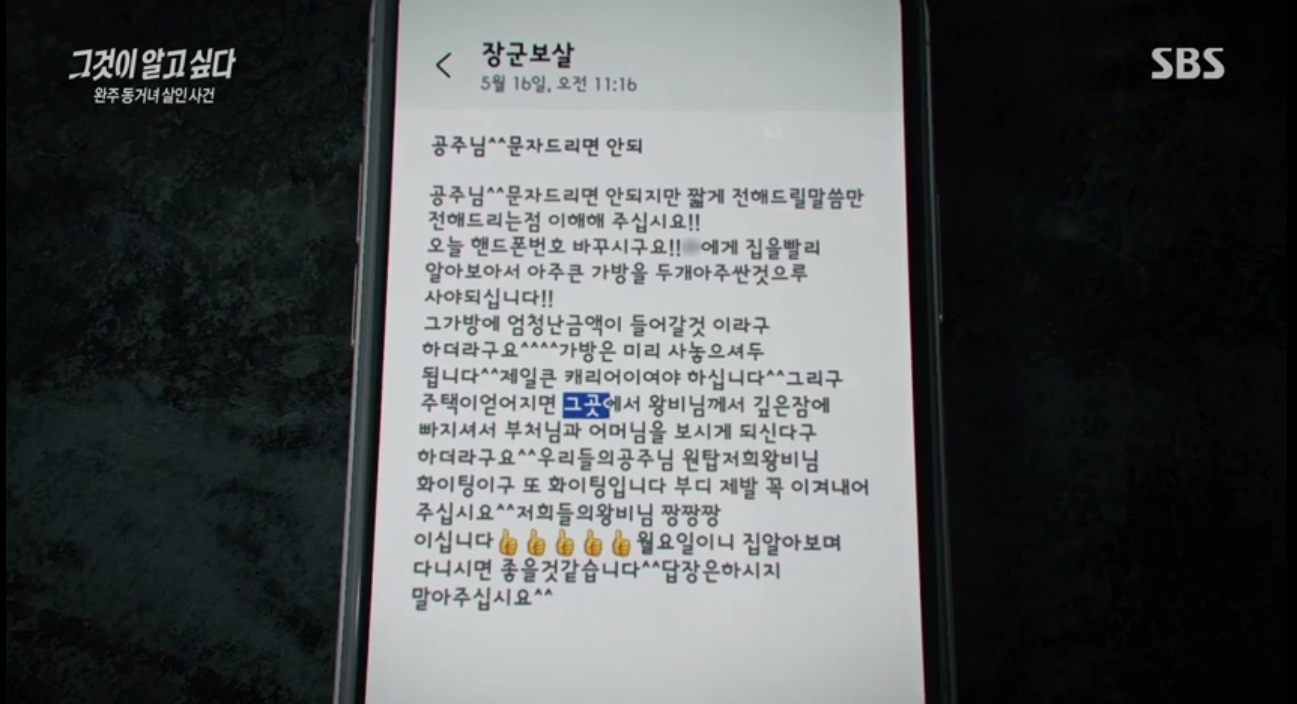 그것이 알고싶다
완주 동거녀 살인 사건
SBS
장군보살
5월 16일, 오전 11:16
공주님^^문자드리면 안되
공주님^^문자드리면 안되지만 짧게 전해드릴말씀만
전해드리는점 이해해 주십시요!!
오늘 핸드폰번호 바꾸시구요!! 에게 집을빨리
알아보아서 아주큰 가방을 두개아주싼것으루
사야되십니다!!
그가방에 엄청난금액이 들어갈것 이라구
하더라구요^^^^가방은 미리 사놓으셔두
됩니다^^제일큰 캐리어이여야 하십니다^^그리구
주택이얻어지면 그곳에서 왕비님께서 깊은잠에
빠지셔서 부처님과 어머님을 보시게 되신다구
하더라구요^^우리들의공주님 원탑저희왕비님
화이팅이구 또 화이팅입니다 부디 제발 꼭 이겨내어
주십시요^^저희들의왕비님 짱짱짱
이십니다👍👍👍👍👍월요일이니 집알아보며
다니시면 좋을것같습니다^^답장은하시지
말아주십시요^^